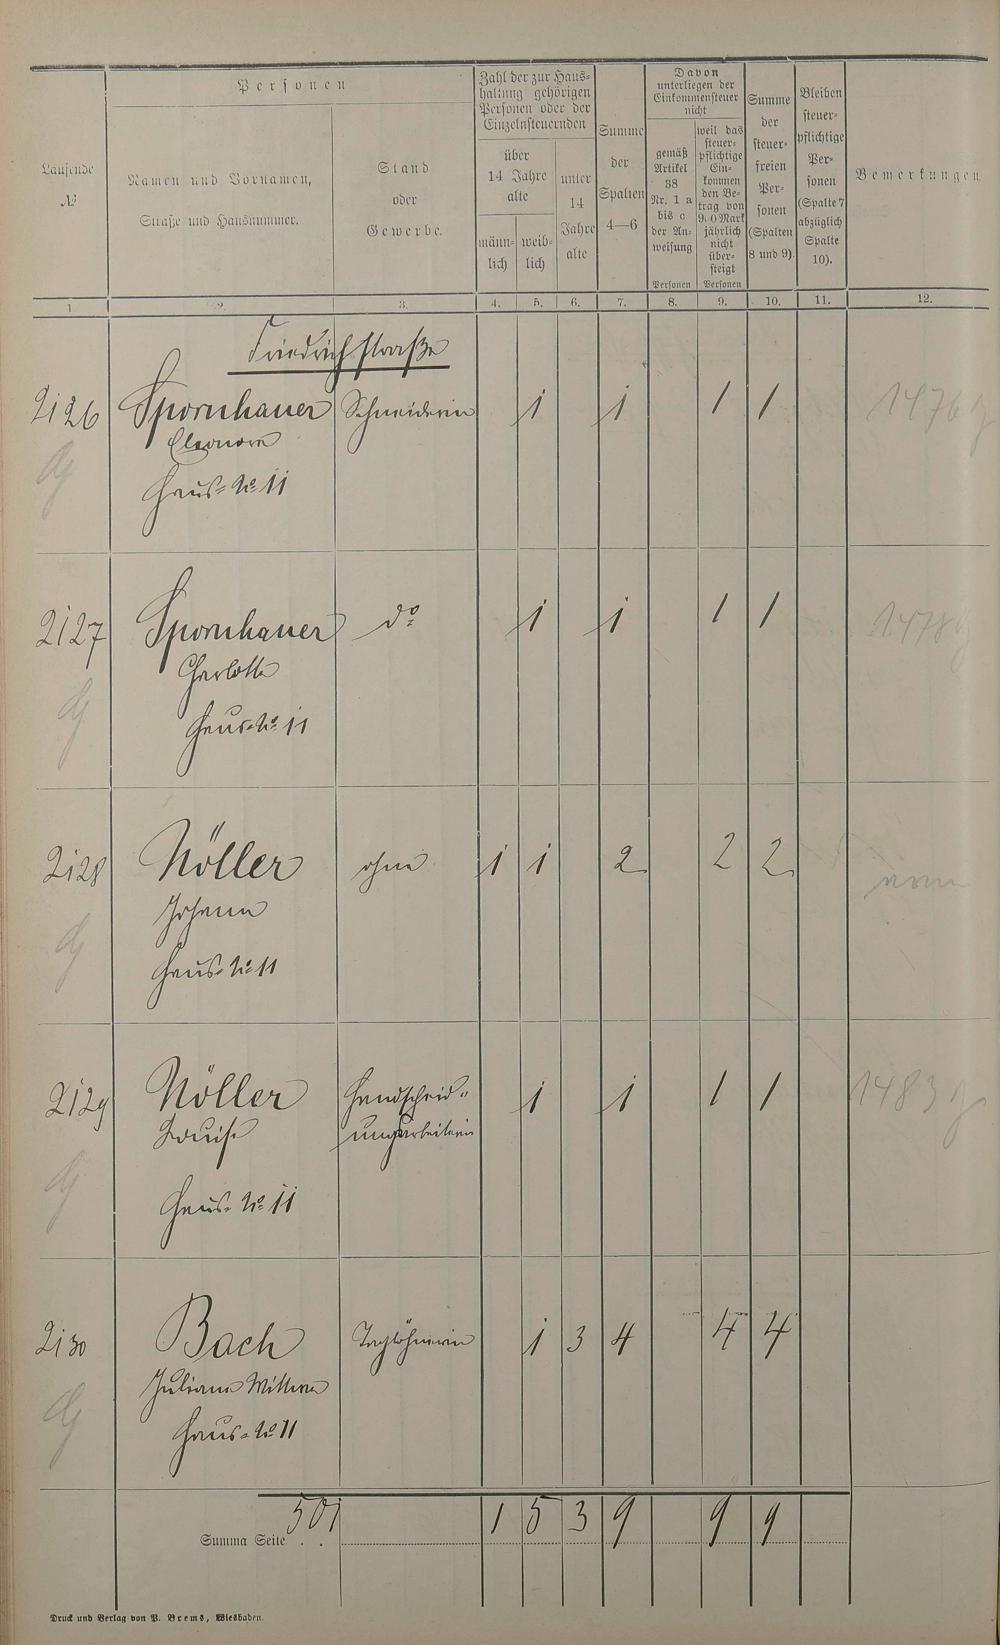 Laufende
№
Personen
Namen und Vornamen,
Straße und Hausnummer.
Stand
oder
Gewerbe.
Zahl der zur Haus-
haltung gehörigen
Personen oder der
Einzelnsteuernden
über
14 Jahre
alte
männ-
lich
weib-
lich
unter
14
Jahre
alte
Summe
der
Spalten
4—6
Davon
unterliegen der
Einkommensteuer
nicht
gemäß
Artikel
38
Nr. 1 a
bis c
der An-
weisung
Personen
weil das
steuer-
pflichtige
Ein-
kommen
den Be-
trag von
900 Mark
jährlich
nicht
über-
steigt
Personen
Summe
der
steuer-
freien
Per-
sonen
(Spalten
8 und 9).
Bleiben
steuer-
pflichtige
Per-
sonen
(Spalte 7
abzüglich
Spalte
10).
Bemerkungen.
1 2 3. 4. 5. 6. 7. 8. 9. 10. 11. 12.
Friedrichstraße
2126 Spornhauer Schneiderin 1 1 1 1 1476
Eleonore
Haus-No 11
2127 Spornhauer do 1 1 1 1 1478
Charlotte
Haus-No 11
2128 Nöller ohne 1 1 2 2 2
Johann
Haus-No 11
2129 Nöller Handschuh- 1 1 1 1 1483
Louise arbeiterin
Haus-No 11
2130 Bach Taglöhnerin 1 3 4 4 4
Juliane Wittwe
Haus-No 11
Summa Seite 501 1 5 3 9 9 9
Druck und Verlag von P. Brems, Wiesbaden.